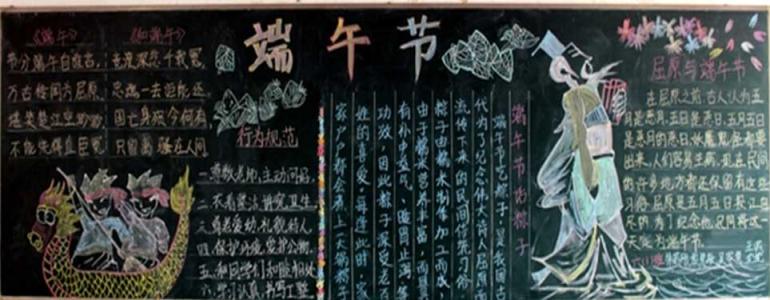 端午节
《端午》 《和端午》
节分端午自谁言， 竞渡深悲千载冤，
万古传闻为屈原； 忠魂一去讵能还
堪笑楚江空渺渺 国亡身殒今何有
不能洗得直臣冤 只留离骚在人间
行为规范
一.尊敬老师,主动问好,
二.不看 讲究卫生,
三.尊老爱幼,礼貌待人,
四.保护环境,爱护公物,
五.和同学们和睦相处
六.学习认真,书写工整
端午节的粽子
端午节吃粽子,是我国古
代为了纪念伟大诗人屈原而
流传下来的民间传统习俗
粽子由糯米制作加工而成,
由于糯米营养丰富,而且
有补中益气、暖胃止泻等
功效,因此粽子深受老百
姓的喜爱,每逢此时,家
家户户都会煮上一大锅粽子
屈原与端午节
在屈原之前,古人认为五
月是恶月,五日是恶日,五月五日
是恶月的恶日,妖魔鬼怪都要
出来,人们容易生病,现在民间
的许多地方都还保留有这些
习俗,屈原是五月五日投江自
尽的,为了纪念他,民间将这一
天定为端午节。